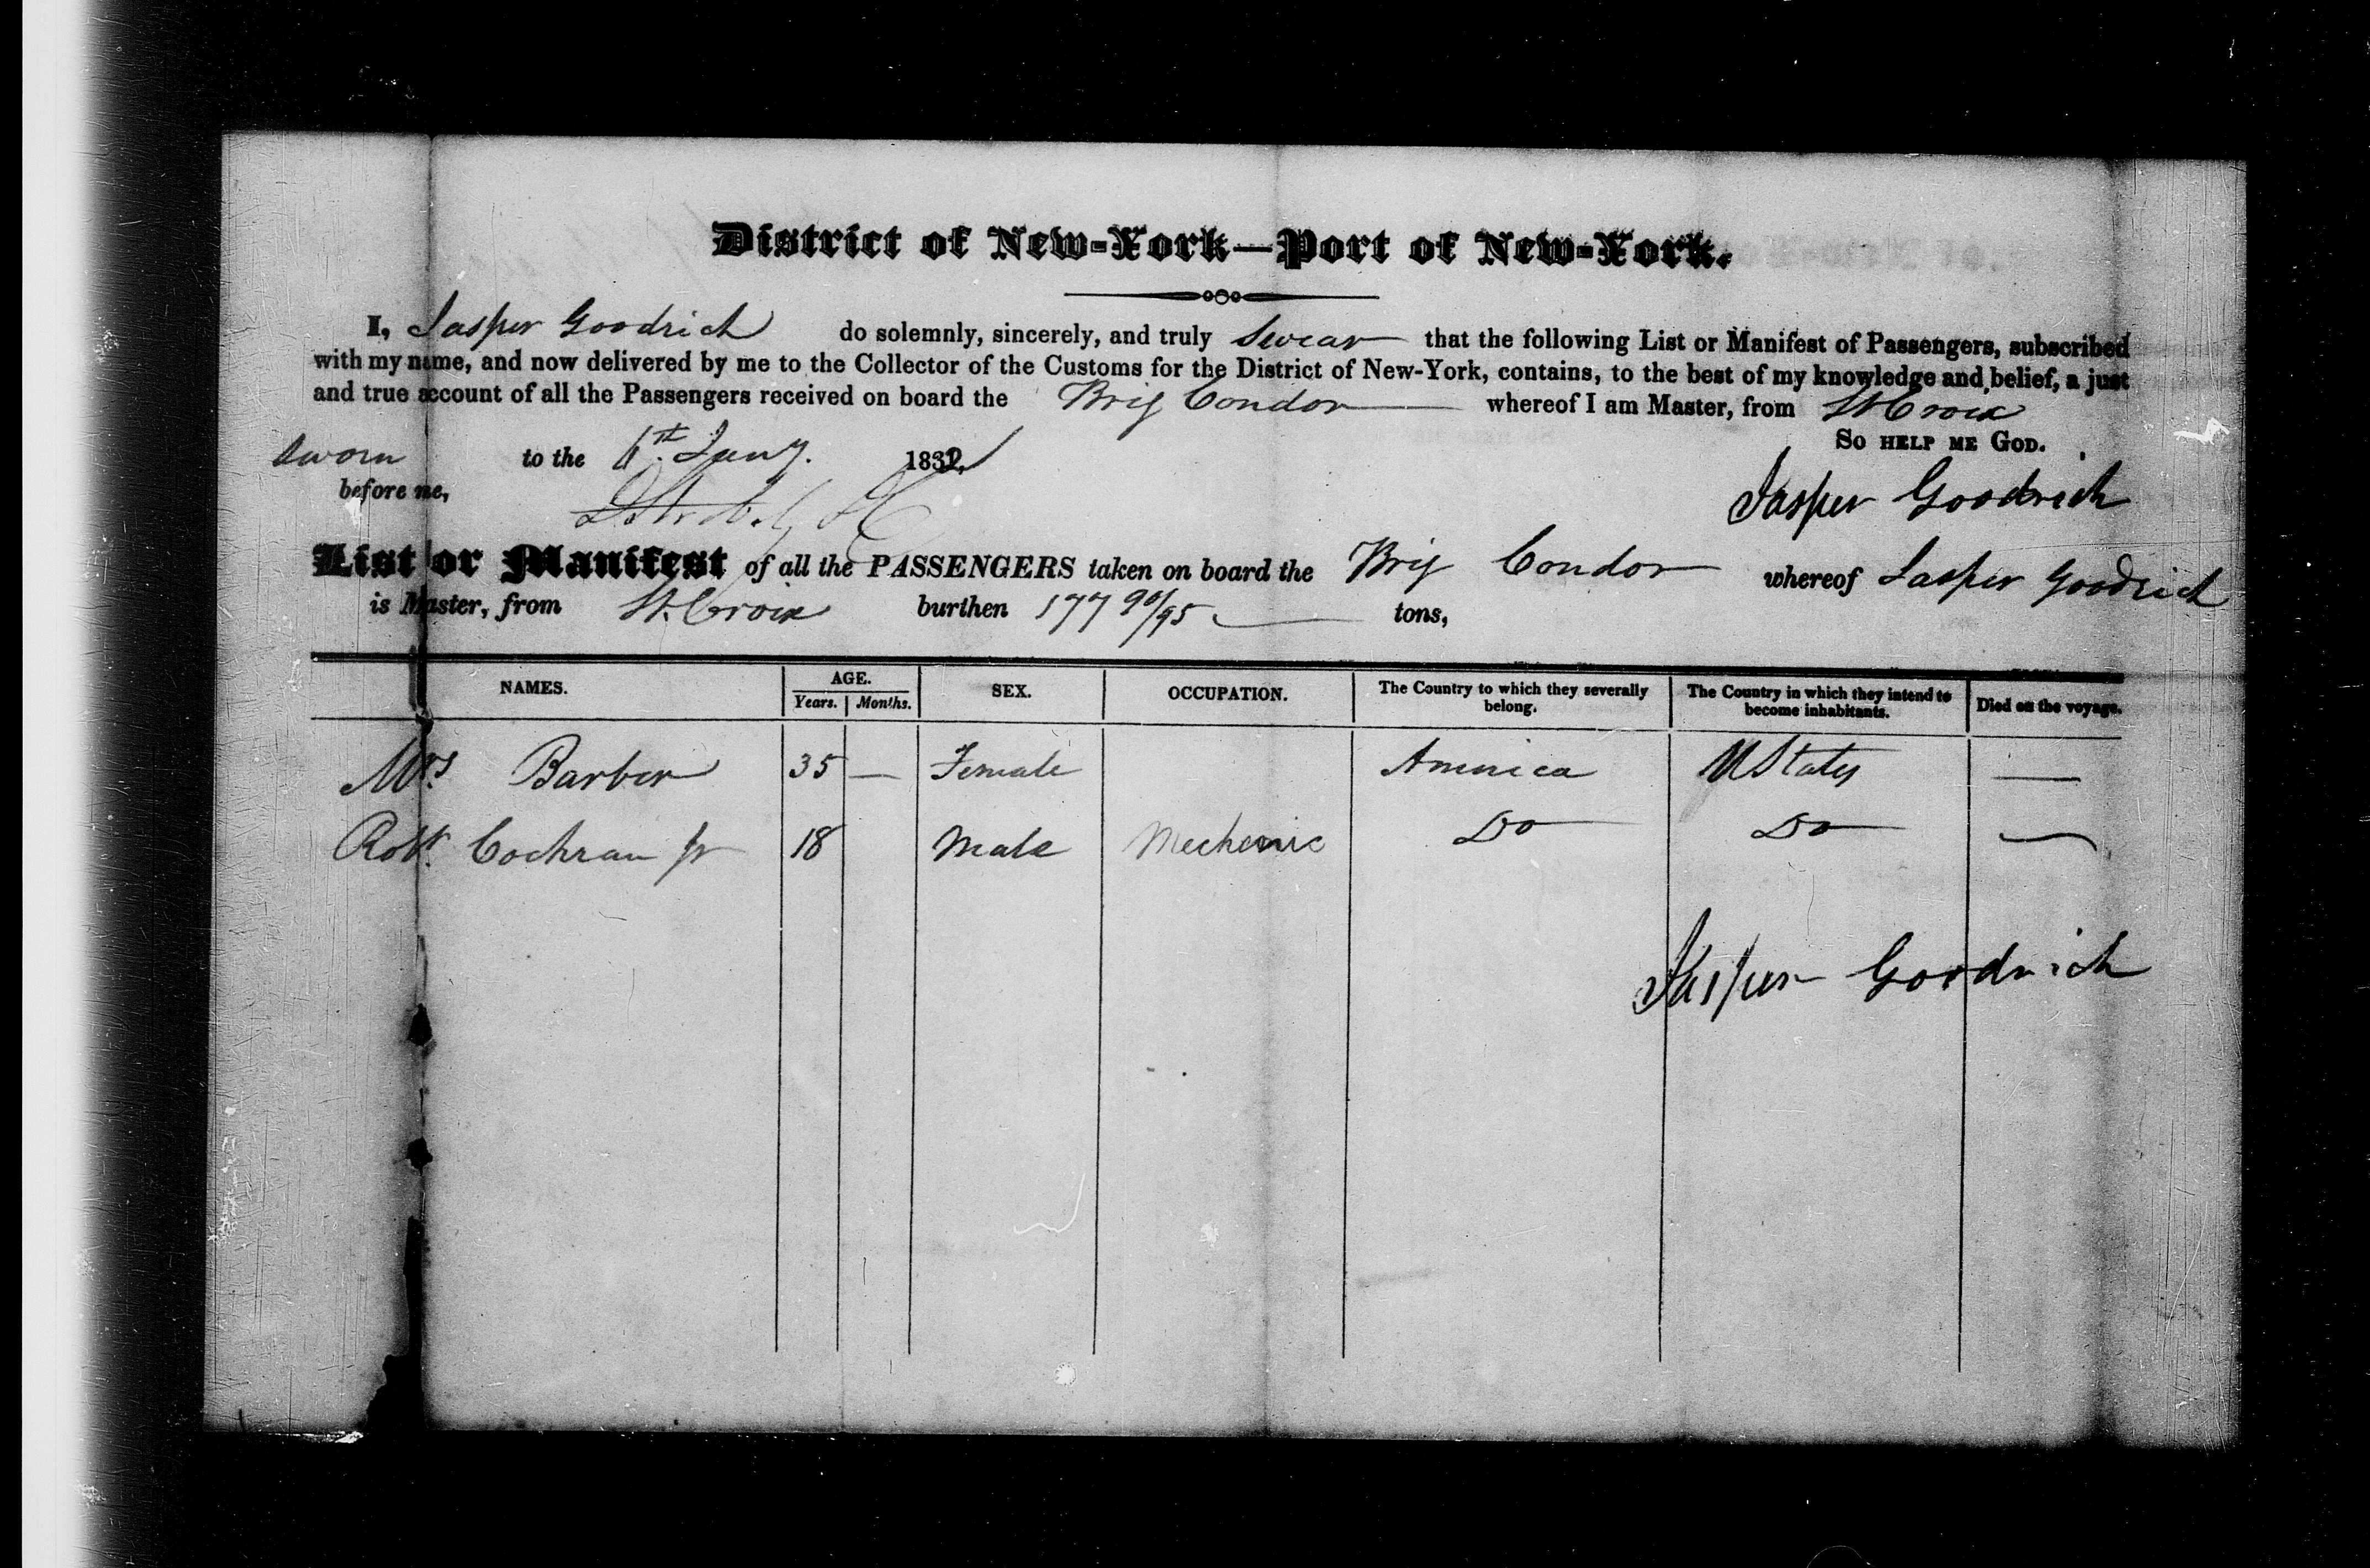 District of New-York—Port of New-York.
I, Jasper Goodrich do solemnly, sincerely, and truly Swear that the following List or Manifest of Passengers, subscribed
with my name, and now delivered by me to the Collector of the Customs for the District of New-York, contains, to the best of my knowledge and belief, a just
and true account of all the Passengers received on board the Brig Condor whereof I am Master, from St Croix
So help me God.
Sworn to the 6th Jany. 1832
before me,
Jasper Goodrich
List or Manifest of all the PASSENGERS taken on board the Brig Condor whereof Jasper Goodrich
is Master, from St. Croix burthen 177 90/95 tons,
NAMES. AGE. Years. Months. SEX. OCCUPATION. The Country to which they severally belong. The Country in which they intend to become inhabitants. Died on the voyage.
Mrs Barber 35 — Female America U States —
Robt. Cochran Jr 18 Male Mechenic Do Do —
Jasper Goodrich